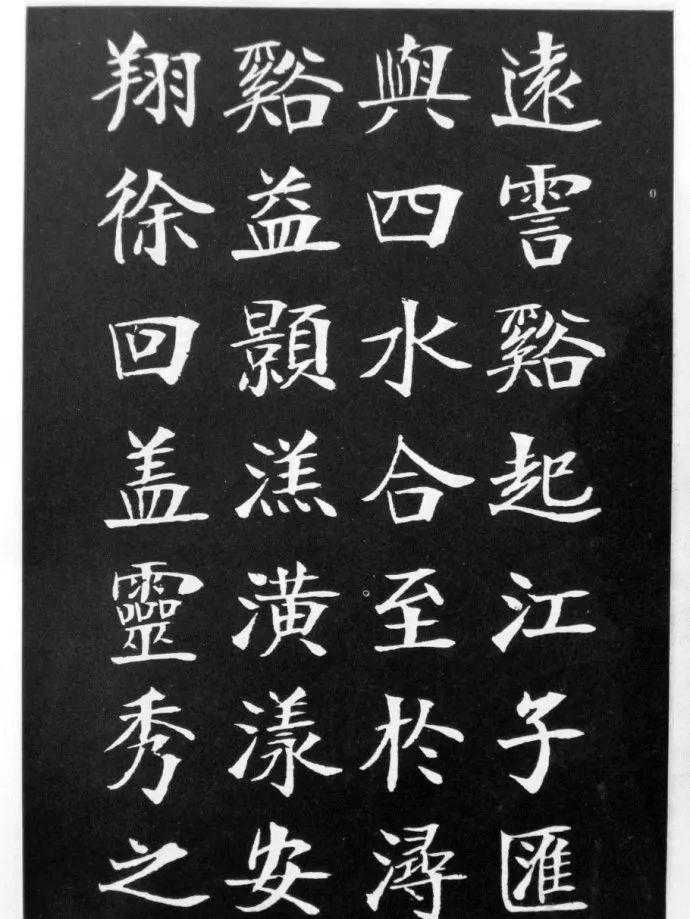 遠霅谿起江子匯
與四水合至於潯
谿益顥溔潢漾安
翔徐回盖靈秀之